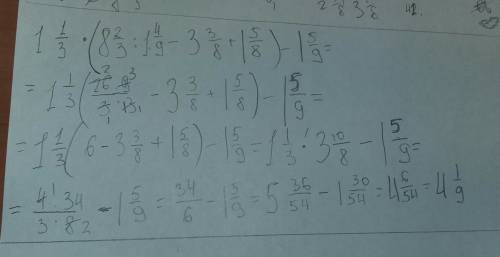 1 1/3 · (8 2/3 : 1 4/9 - 3 3/8 + 1 5/8) - 1 5/9 =
= 1 1/3 (26 · 9/3 · 13 - 3 3/8 + 1 5/8) - 1 5/9 =
= 1 1/3 (6 - 3 3/8 + 1 5/8) - 1 5/9 = 1 1/3 · 3 10/8 - 1 5/9 =
= 4 · 34/3 · 8 - 1 5/9 = 34/6 - 1 5/9 = 5 36/54 - 1 30/54 = 4 6/54 = 4 1/9